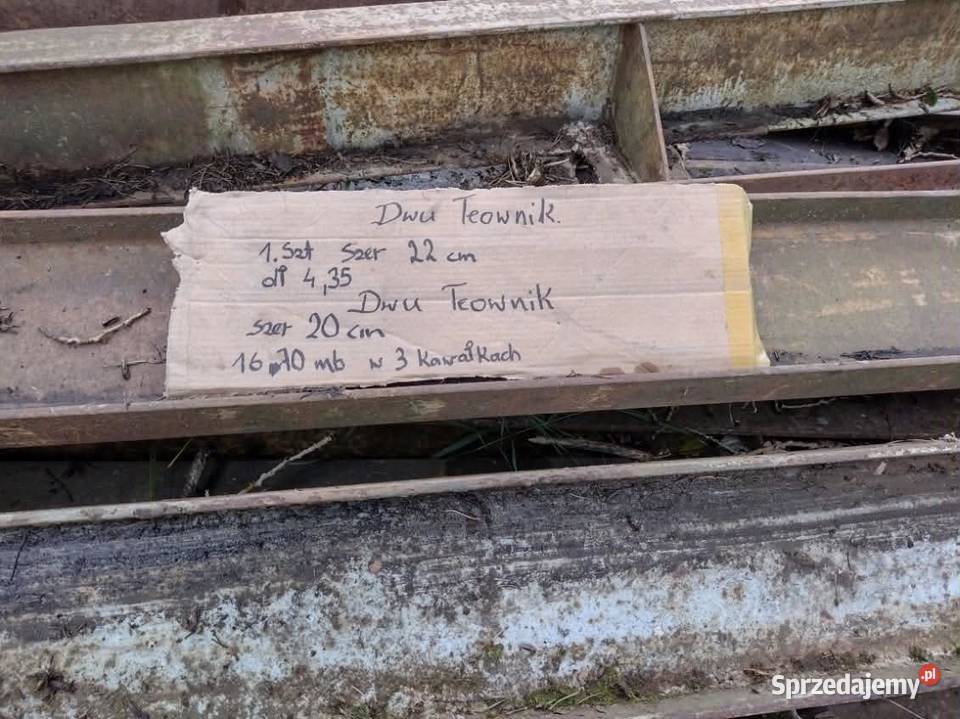 Dwu Teownik.
1.Szt Szer 22 cm
dł 4,35
Dwu Teownik
szer 20 cm
16,70 mb w 3 kawałkach
Sprzedajemy.pl